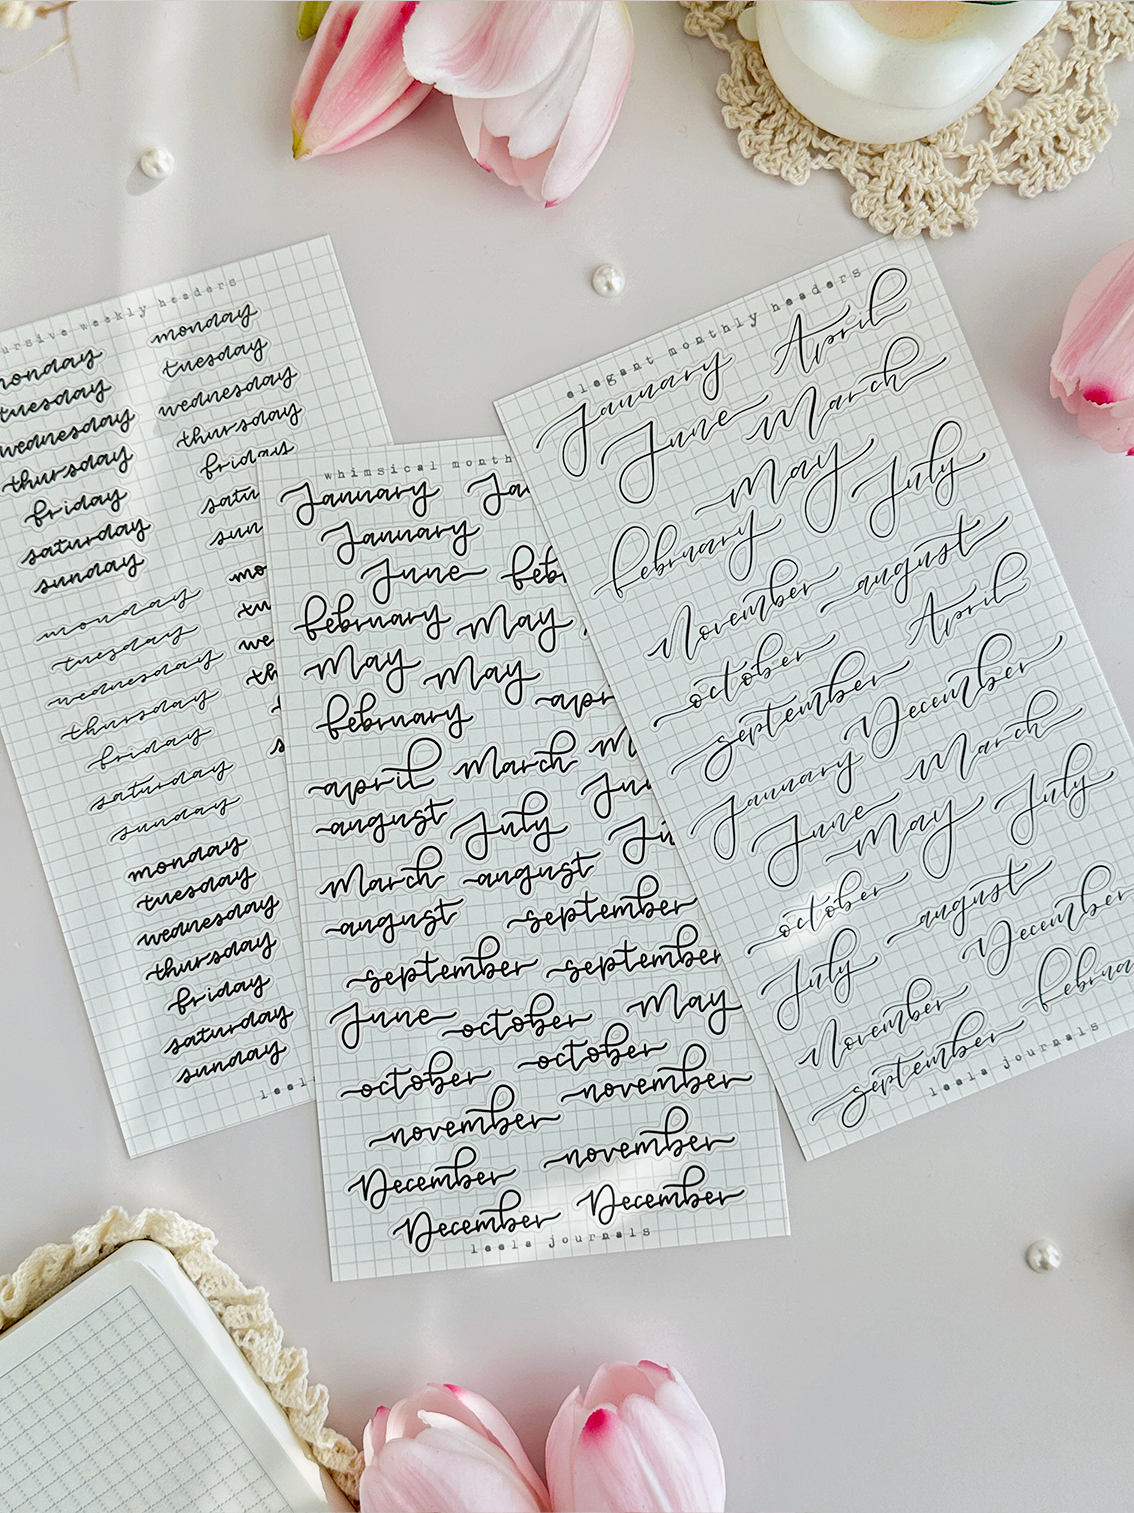 weekly headers
monday monday
tuesday tuesday
wednesday wednesday
thursday thursday
friday friday
saturday
sunday
monday
tuesday
wednesday
thursday
friday
saturday
sunday
monday
tuesday
wednesday
thursday
friday
saturday
sunday
whimsical
January
January
June
february May
May May
february
april March
august July
March august
august september
september september
June october May
october october
november november
November
December november
December December
leela journals
elegant monthly headers
January April
June March
May July
february
November august
october April
september December
January March
June May July
october august
July December
November
september
leela journals